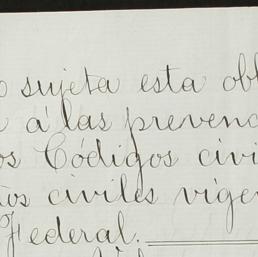 o sujeta esta obl
á las prevenc
os Códigos civi
tos civiles vige
Federal.